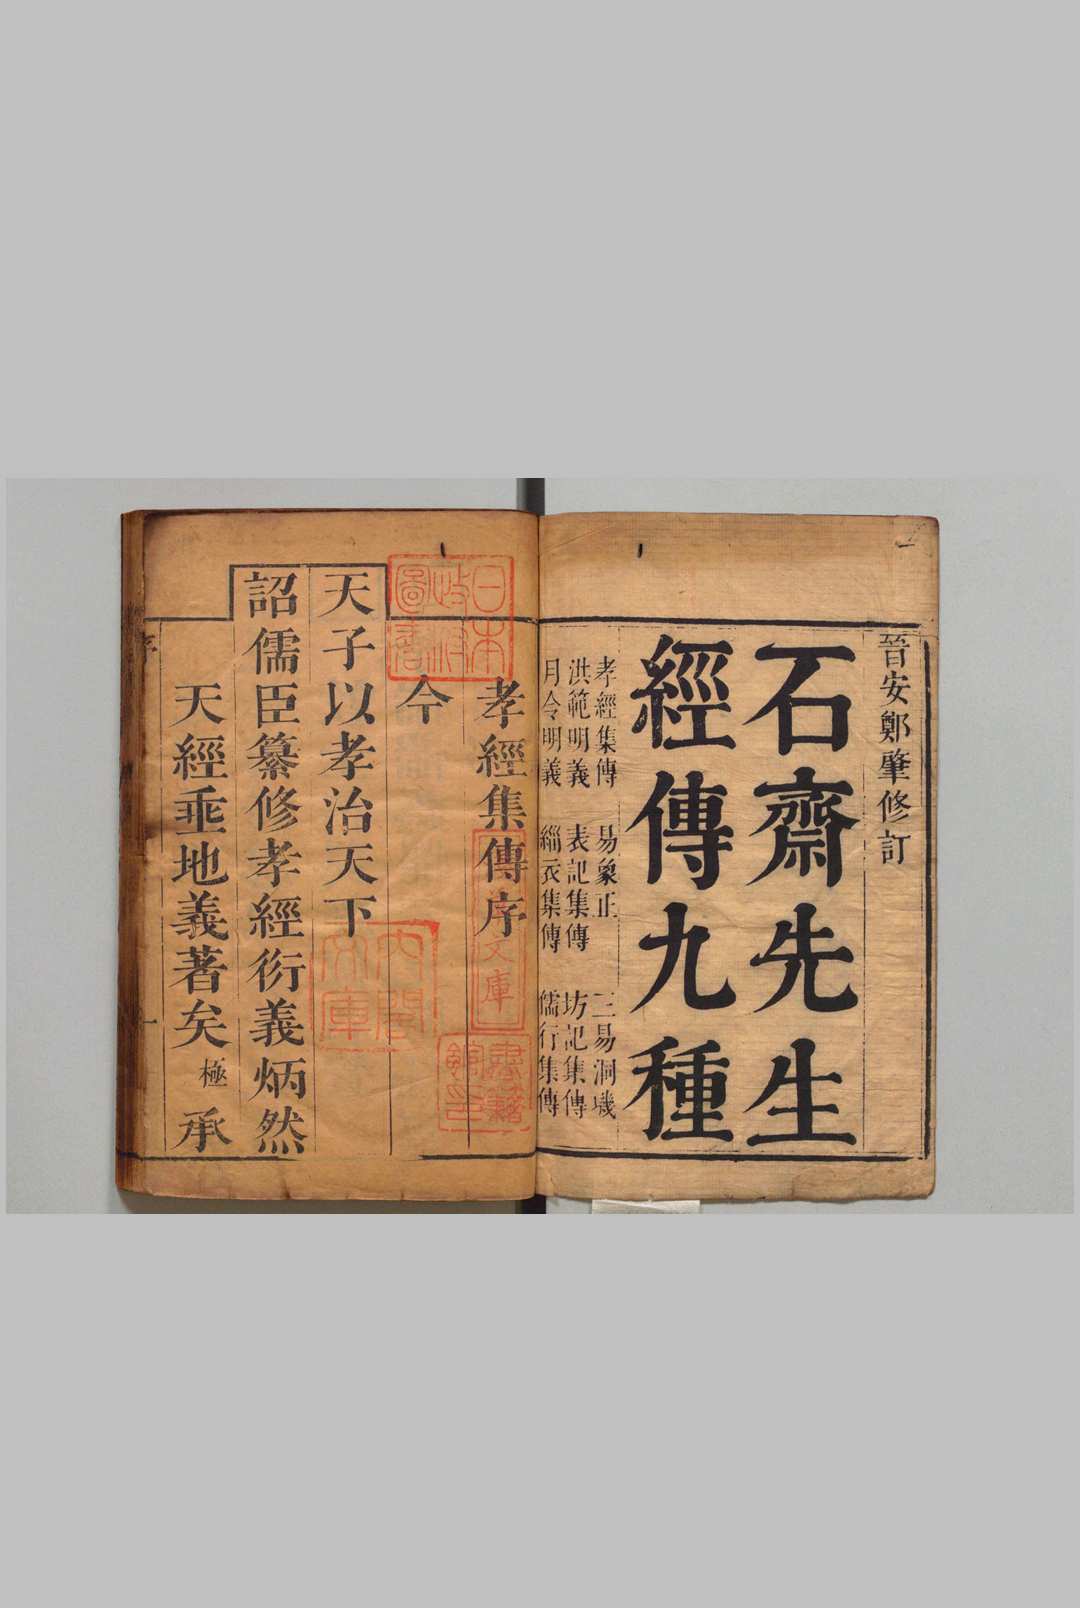 晉安鄭肇修訂
石齋先生
經傳九種
孝經集傳 易象正 三易洞璣
洪範明義 表記集傳 坊記集傳
月令明義 緇衣集傳 儒行集傳
孝經集傳序
今
天子以孝治天下
詔儒臣纂修孝經衍義炳然
天經垂地義著矣 極 承
日本
政府
圖書
文庫
內閣
文庫
書籍
館印
序
一